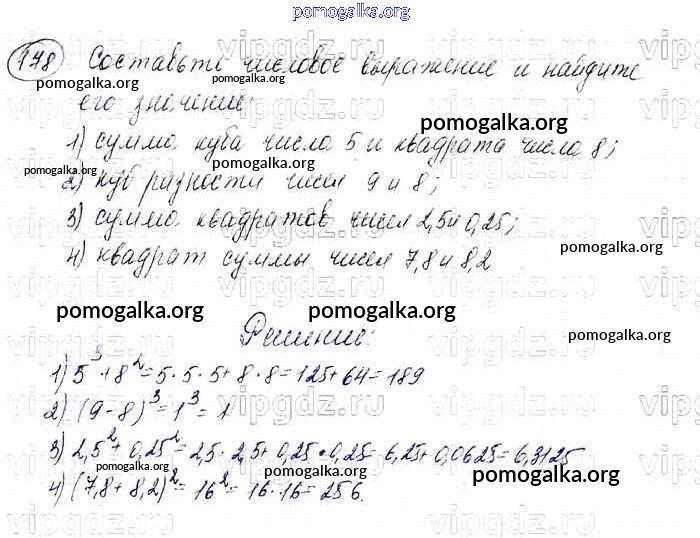 pomogalka.org
178 Составьте числовое выражение и найдите
pomogalka.org pomogalka.org
его значение:
pomogalka.org
1) сумма куба числа 5 и квадрата числа 8;
pomogalka.org pomogalka.org
2) куб разности чисел 9 и 8;
3) сумма квадратов чисел 2,5 и 0,25;
pomogalka.org
4) квадрат суммы чисел 7,8 и 8,2
pomogalka.org pomogalka.org
Решение:
pomogalka.org
1) 5³+8²=5·5·5+8·8=125+64=189
2) (9-8)³=1³=1
3) 2,5²+0,25²=2,5·2,5+0,25·0,25=6,25+0,0625=6,3125
pomogalka.org pomogalka.org
4) (7,8+8,2)²=16²=16·16=256.
vipgdz.ru